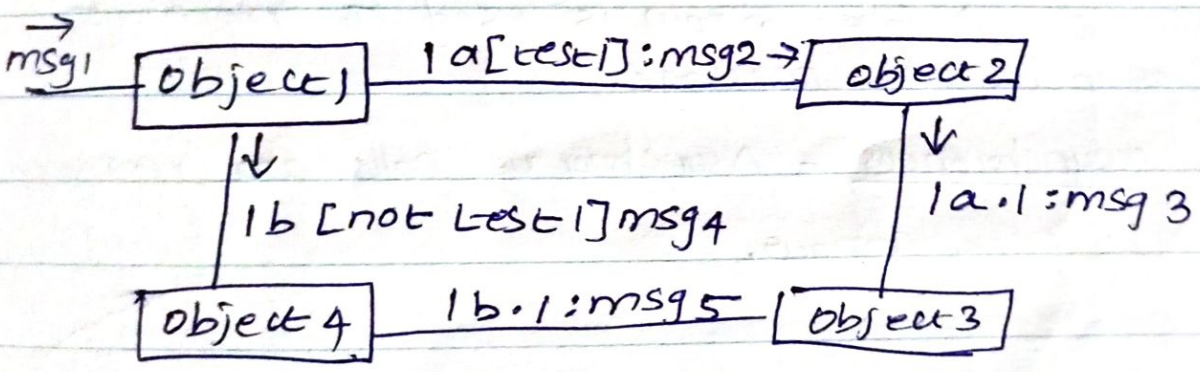 msg1
object1
1a[test1]:msg2→
object2
1b [not test1]msg4
1a.1:msg3
object4
1b.1:msg5
object3